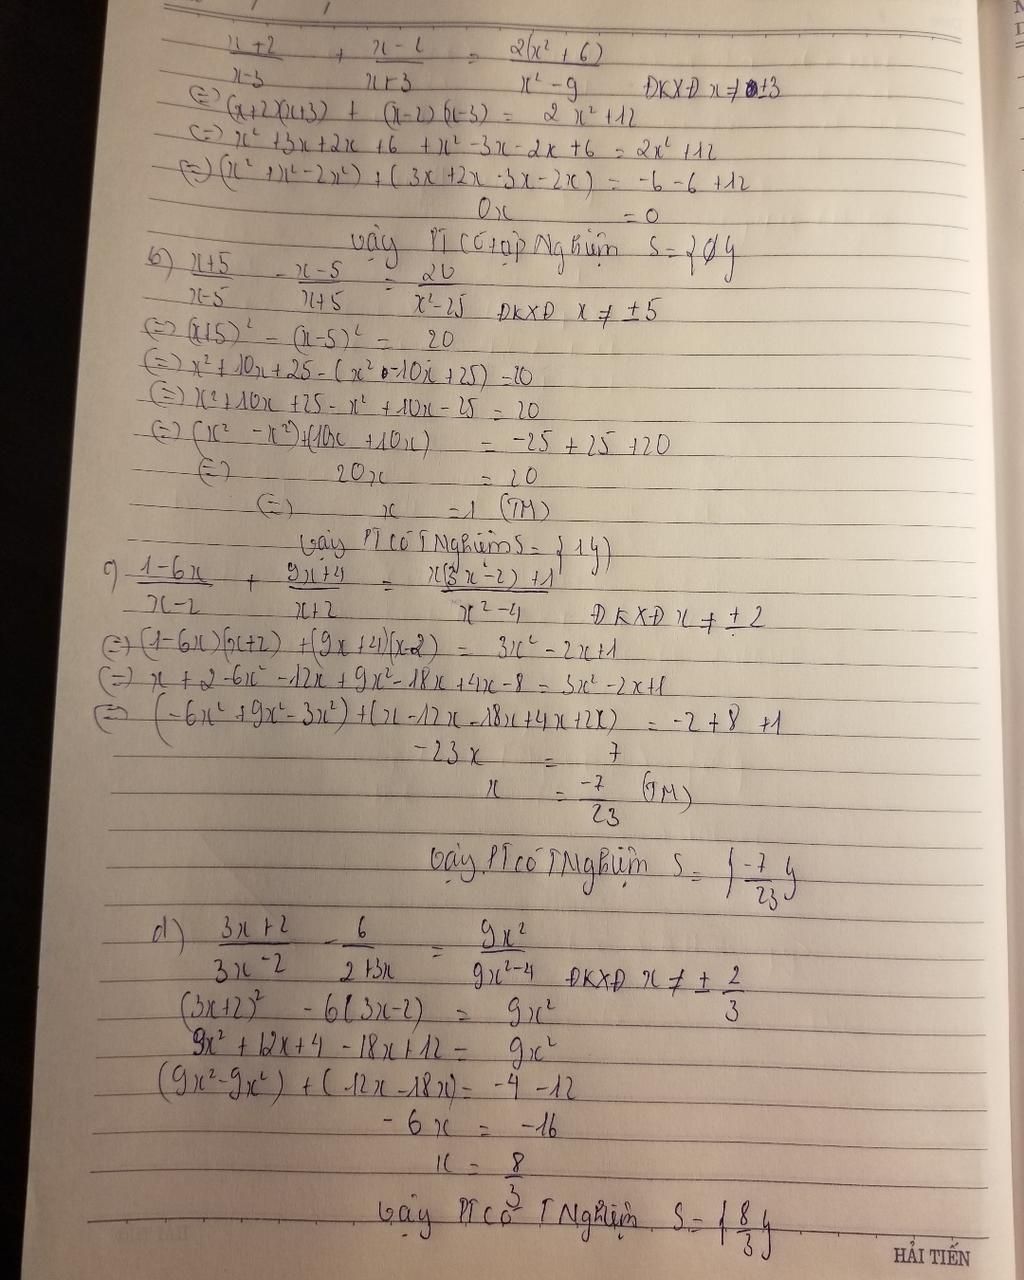 x+2/x-3 + x-2/x+3 = 2(x² + 6)/x² - 9 ĐKXĐ x ≠ ±3
(=) (x+2)(x+3) + (x-2)(x-3) = 2x² + 12
(=) x² + 3x + 2x + 6 + x² - 3x - 2x + 6 = 2x² + 12
(=) (x² + x² - 2x²) + (3x + 2x - 3x - 2x) = -6 - 6 + 12
0x = 0
Vậy PT có tập Nghiệm S = {Ø}
b) x+5/x-5 - x-5/x+5 = 20/x²-25 ĐKXĐ x ≠ ±5
(=) (x+5)² - (x-5)² = 20
(=) x² + 10x + 25 - (x² - 10x + 25) = 20
(=) x² + 10x + 25 - x² + 10x - 25 = 20
(=) (x² - x²) + (10x + 10x) = -25 + 25 + 20
(=) 20x = 20
(=) x = 1 (TM)
Vậy PT có T Nghiệm S = {1}
1-6x/x-2 + 9x+4/x+2 = x(3x-2)+1/x²-4 ĐKXĐ x ≠ ±2
(=) (1-6x)(x+2) + (9x+4)(x-2) = 3x² - 2x + 1
(=) x + 2 - 6x² - 12x + 9x² - 18x + 4x - 8 = 3x² - 2x + 1
(=) (-6x² + 9x² - 3x²) + (x - 12x - 18x + 4x + 2x) = -2 + 8 + 1
-23x = 7
x = -7/23 (TM)
Vậy PT có T Nghiệm S = {-7/23}
d) 3x+2/3x-2 - 6/2+3x = 9x²/9x²-4 ĐKXĐ x ≠ ± 2/3
(3x+2)² - 6(3x-2) = 9x²
9x² + 12x + 4 - 18x + 12 = 9x²
(9x² - 9x²) + (12x - 18x) = -4 - 12
-6x = -16
x = 8/3
Vậy PT có T Nghiệm S = {8/3}
HẢI TIẾN